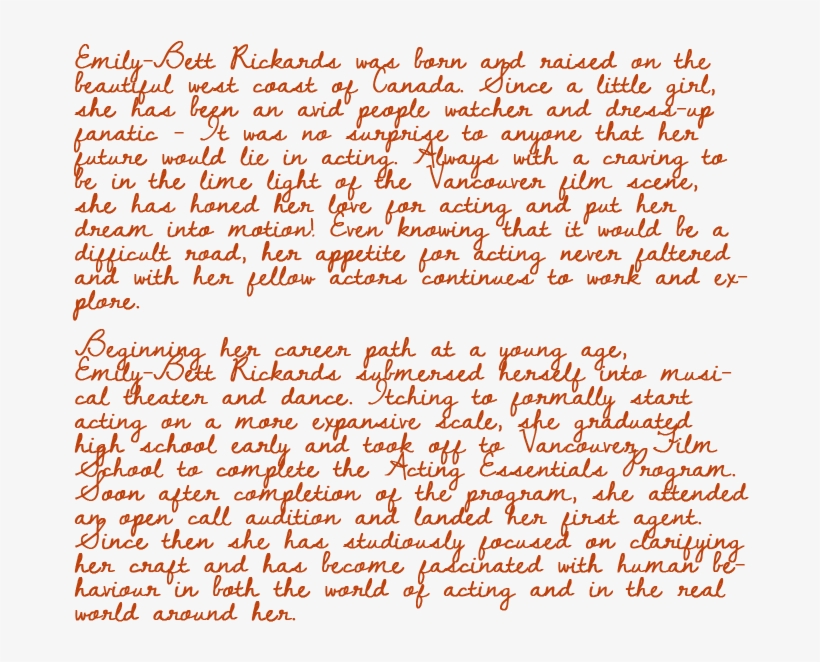 Emily-Bett Rickards was born and raised on the
beautiful west coast of Canada. Since a little girl,
she has been an avid people watcher and dress-up
fanatic - It was no surprise to anyone that her
future would lie in acting. Always with a craving to
be in the lime light of the Vancouver film scene,
she has honed her love for acting and put her
dream into motion! Even knowing that it would be a
difficult road, her appetite for acting never faltered
and with her fellow actors continues to work and ex-
plore.

Beginning her career path at a young age,
Emily-Bett Rickards submersed herself into musi-
cal theater and dance. Itching to formally start
acting on a more expansive scale, she graduated
high school early and took off to Vancouver Film
School to complete the Acting Essentials Program.
Soon after completion of the program, she attended
an open call audition and landed her first agent.
Since then she has studiously focused on clarifying
her craft and has become fascinated with human be-
haviour in both the world of acting and in the real
world around her.